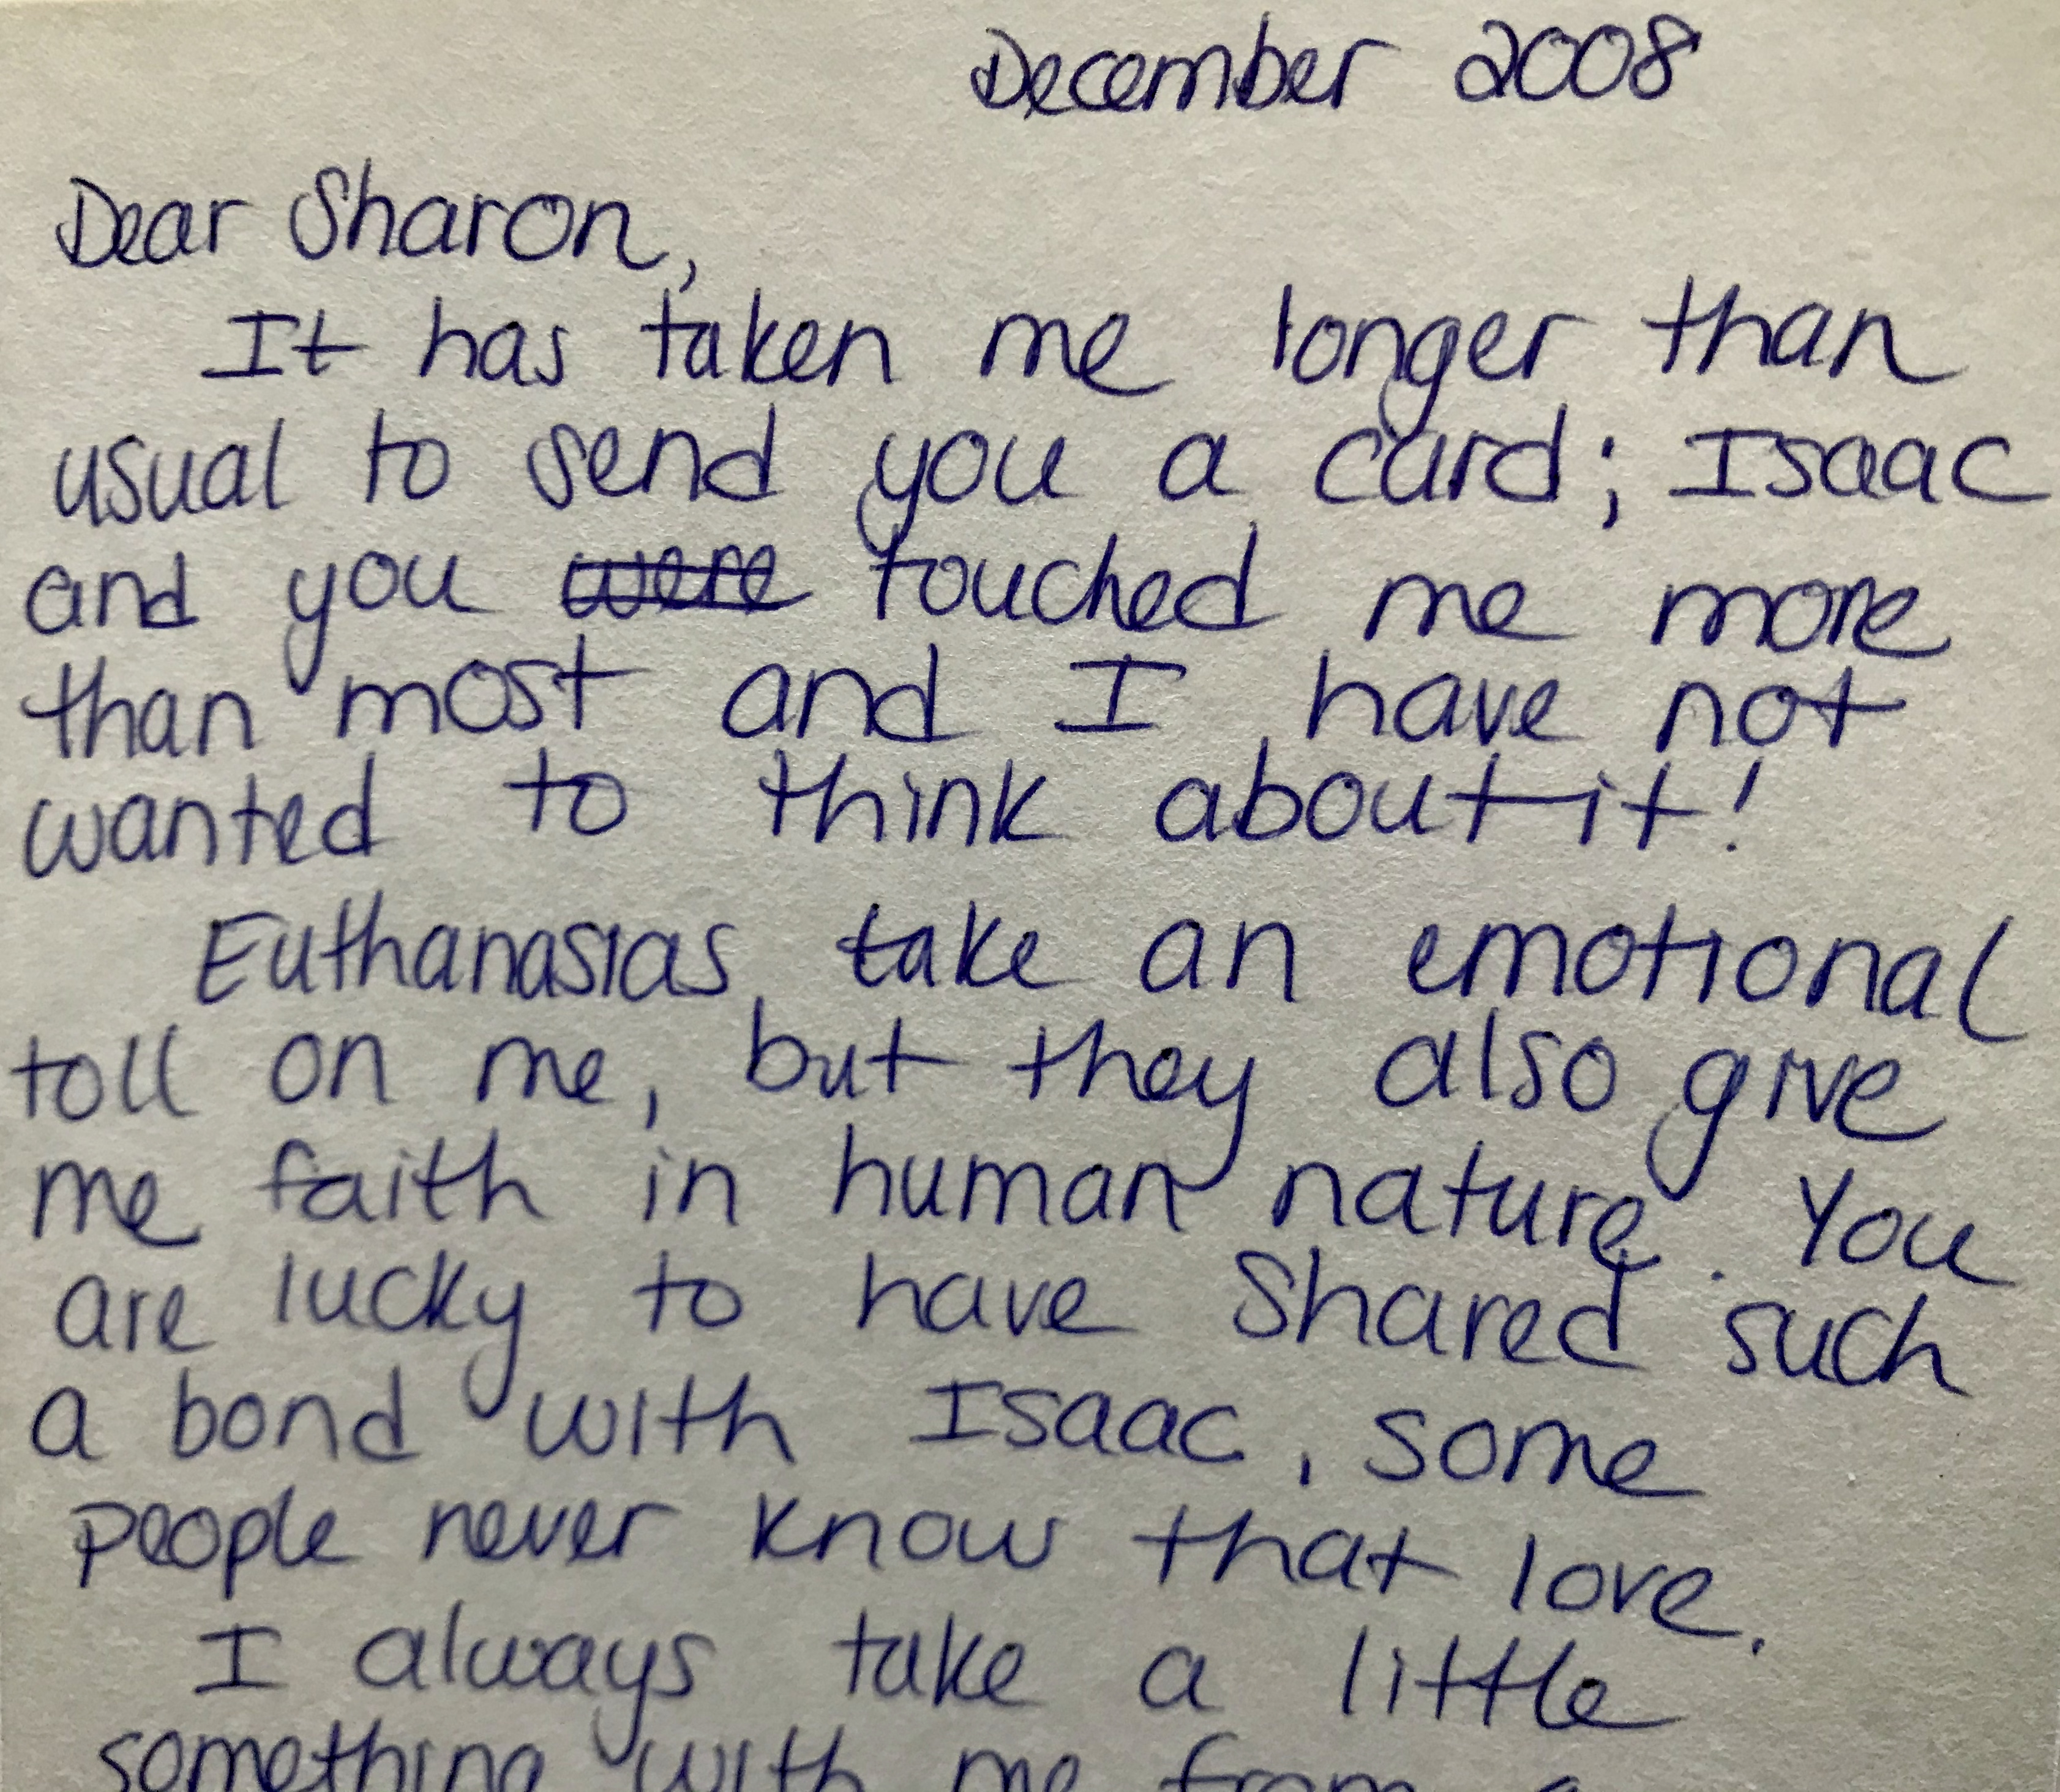 December 2008
Dear Sharon,
It has taken me longer than
usual to send you a card; Isaac
and you were touched me more
than most and I have not
wanted to think about it!
Euthanasias take an emotional
toll on me, but they also give
me faith in human nature. You
are lucky to have shared such
a bond with Isaac, some
people never know that love.
I always take a little
something with me from a